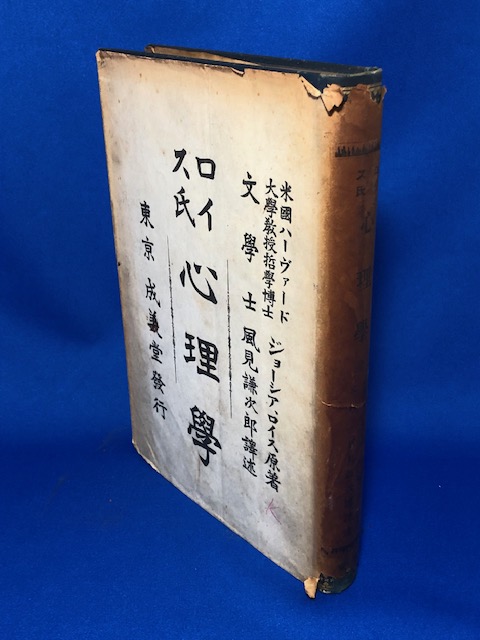 米國ハーヴァード
大學教授哲學博士
ジョーシア、ロイス原著
文學士 風見謙次郎譯述
ロイス氏
心理學
東京 成義堂發行
心理學